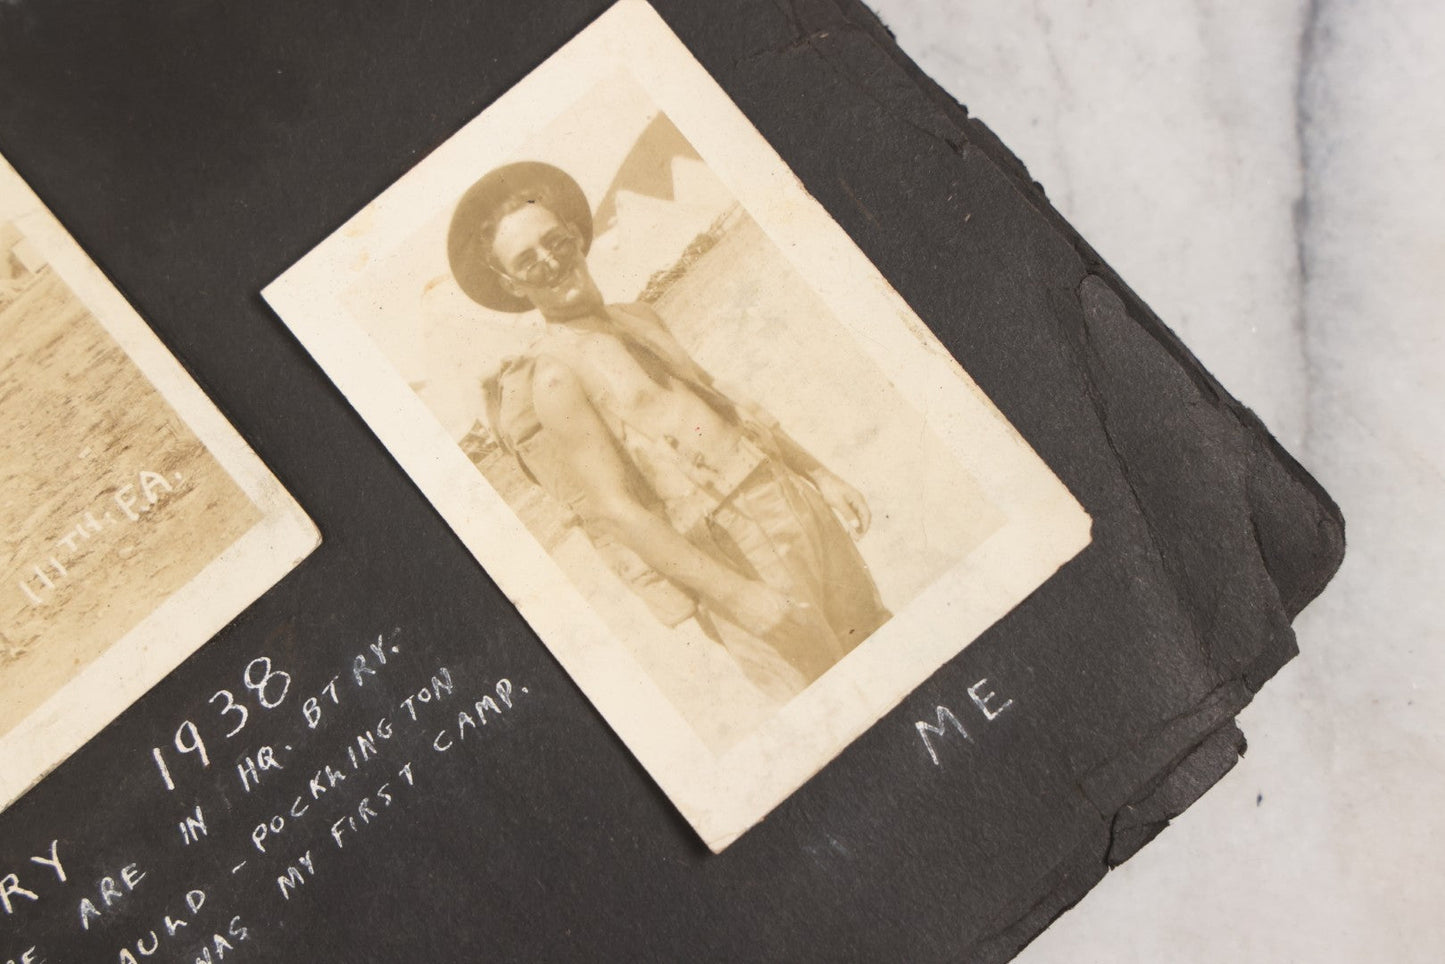 111TH. F.A.
1938
RY
ARE IN HQ. BTRY.
AULD - POCKLINGTON
WAS MY FIRST CAMP.
ME